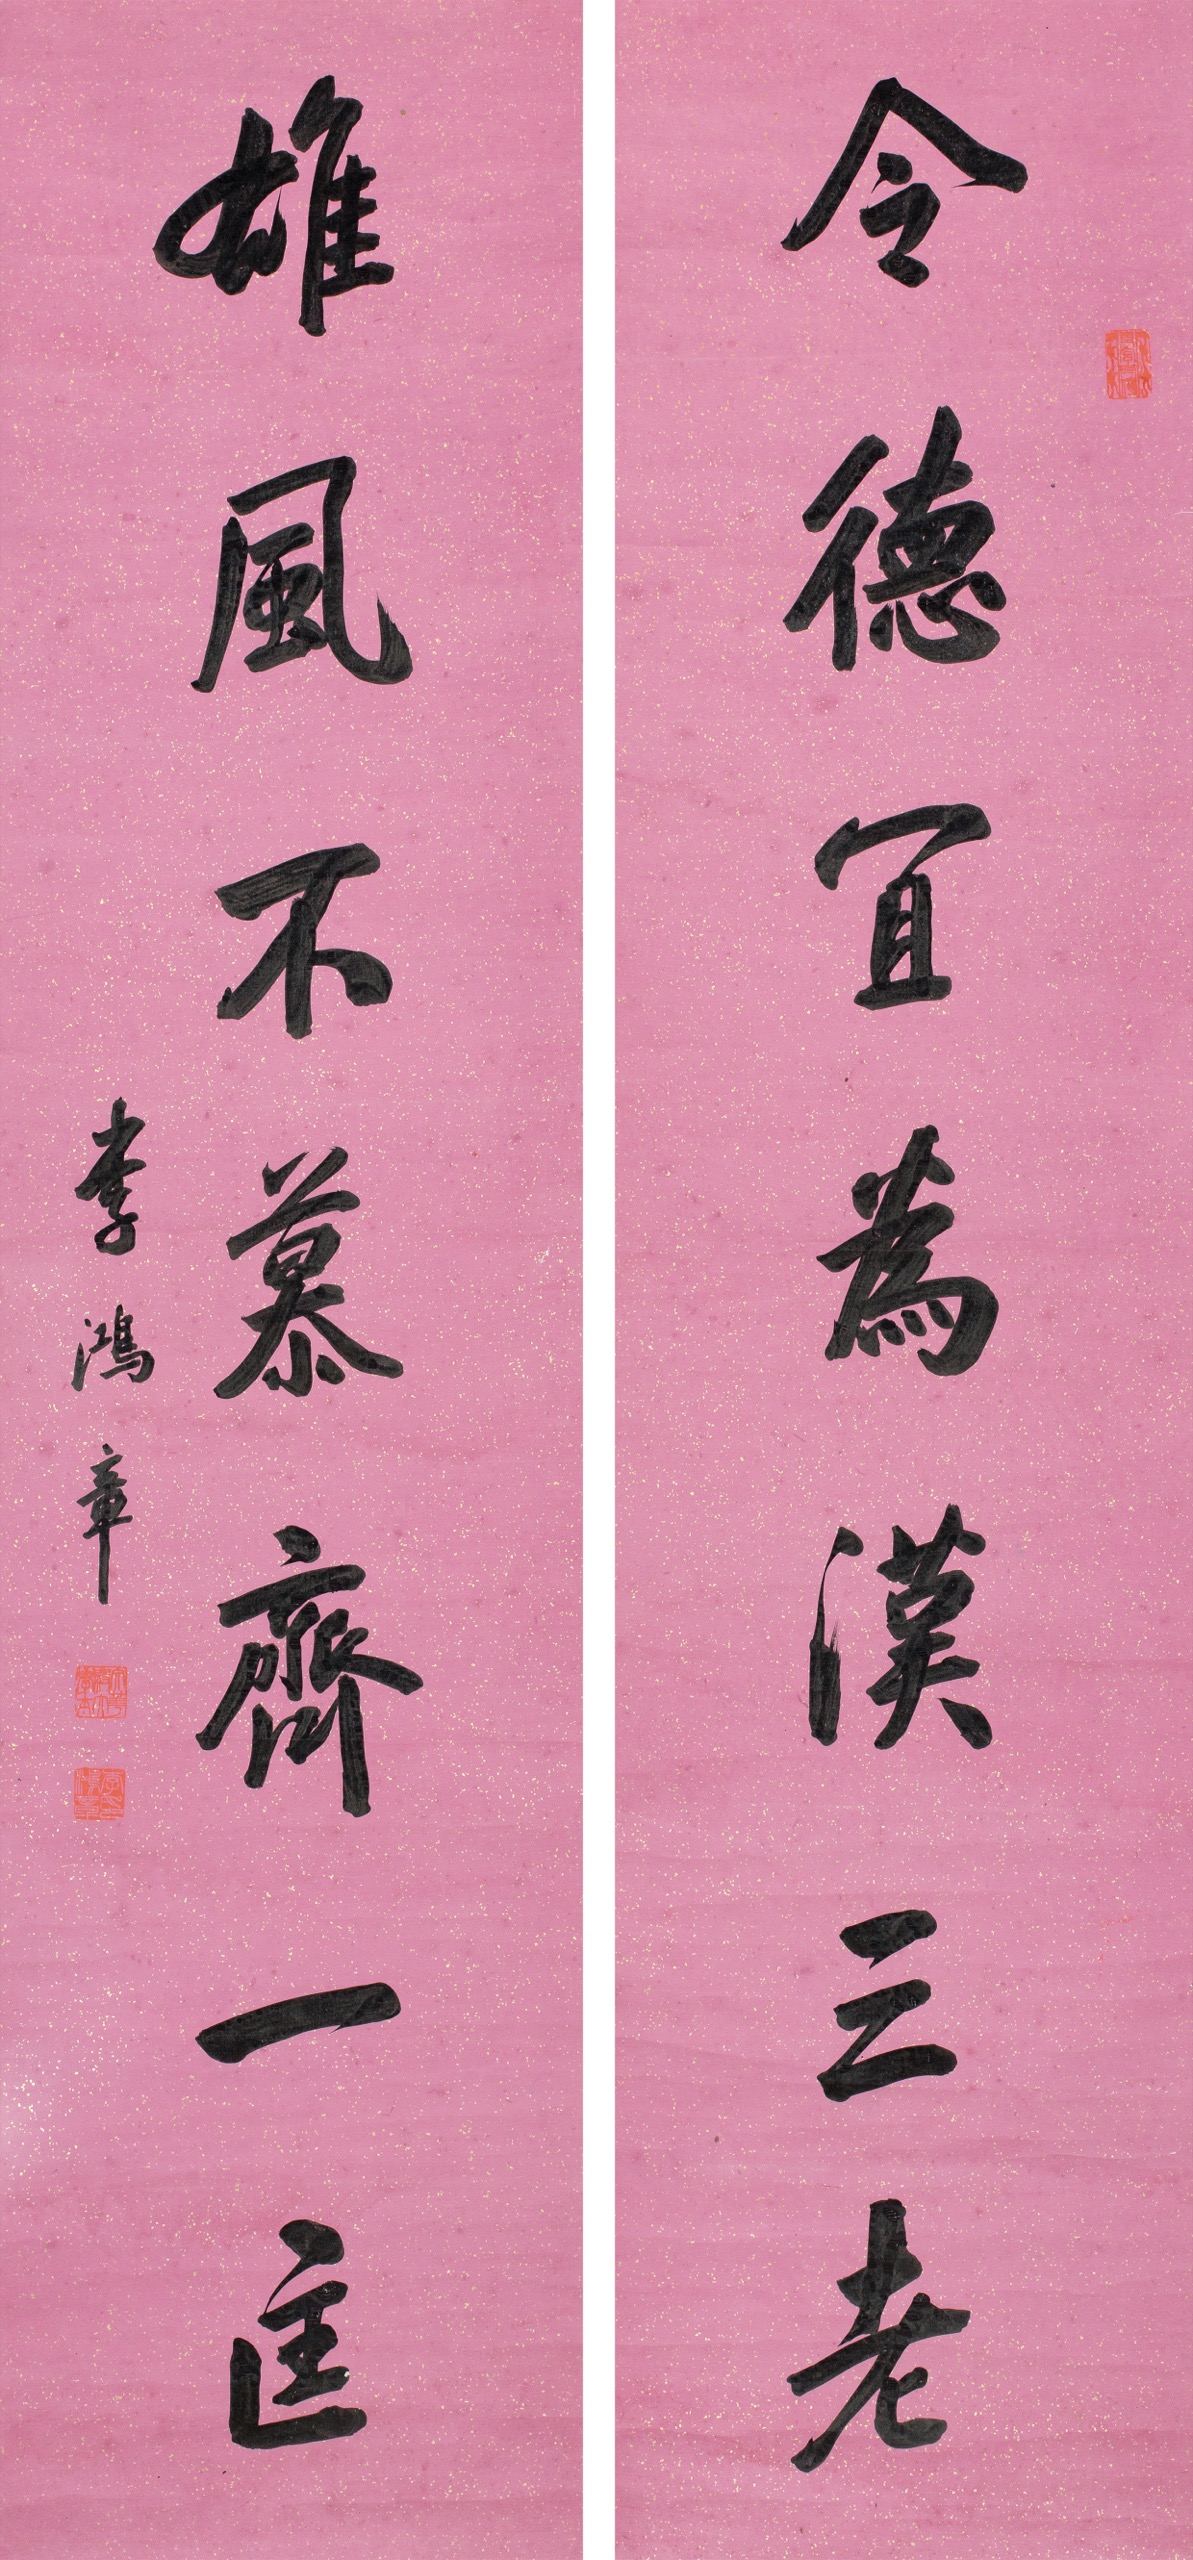 令德宜為漢三老
雄風不慕齊一匡
李鴻章